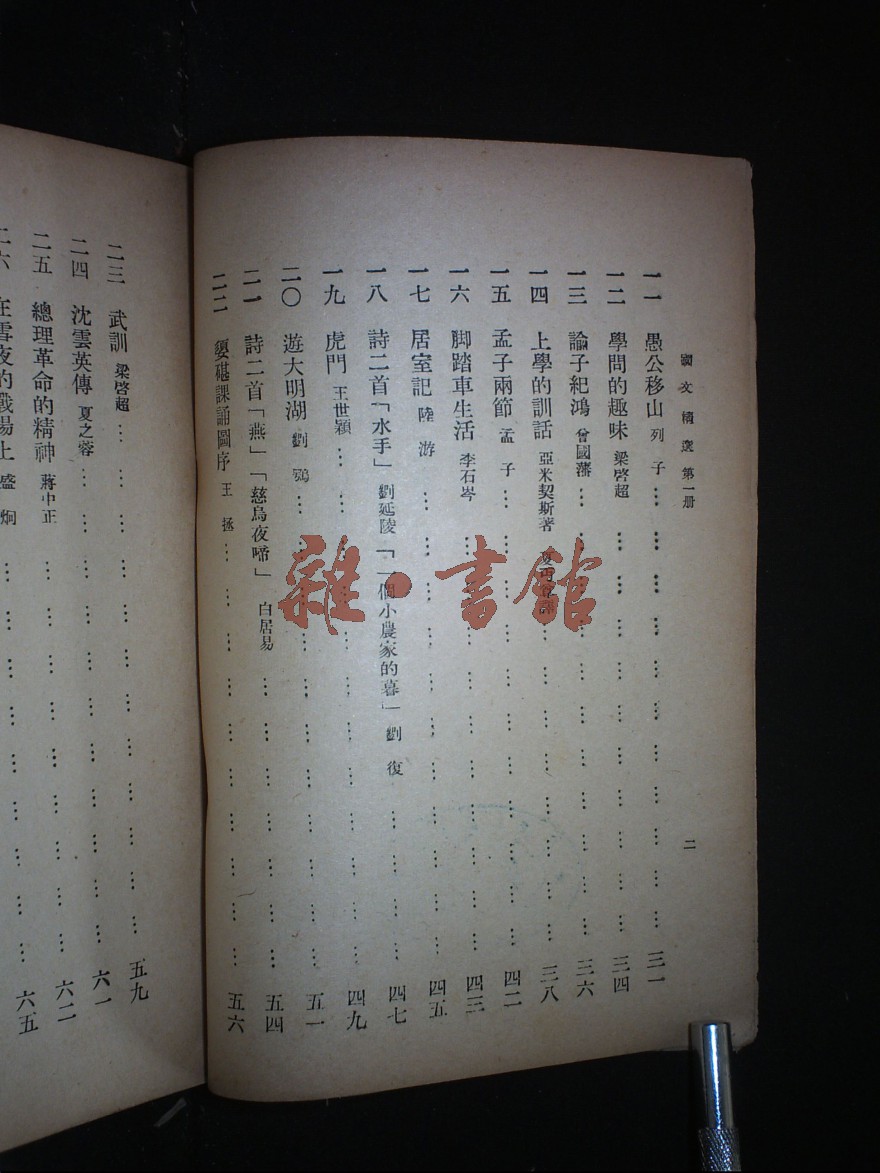 國文精選 第一册
二
一一 愚公移山 列子 … … … … … … … … … … 三一
一二 學問的趣味 梁啓超 … … … … … … … … … … 三四
一三 諭子紀鴻 曾國藩 … … … … … … … … … … 三六
一四 上學的訓話 亞米契斯著 … … … … … … … … 三八
一五 孟子兩節 孟子 … … … … … … … … … … 四二
一六 脚踏車生活 李石岑 … … … … … … … … … 四三
一七 居室記 陸游 … … … … … … … … … … 四五
一八 詩二首「水手」劉延陵「一個小農家的暮」劉復 … … … … 四七
一九 虎門 王世穎 … … … … … … … … … … 四九
二〇 遊大明湖 劉鶚 … … … … … … … … … … 五一
二一 詩二首「燕」「慈烏夜啼」 白居易 … … … … … … 五四
二二 媭碪課誦圖序 王拯 … … … … … … … … … 五六
二三 武訓 梁啓超 … … … … … … … … … … 五九
二四 沈雲英傳 夏之蓉 … … … … … … … … … … 六一
二五 總理革命的精神 蔣中正 … … … … … … … … 六二
二六 在雪夜的戰場上 盛炯 … … … … … … … … 六五
雜·書館